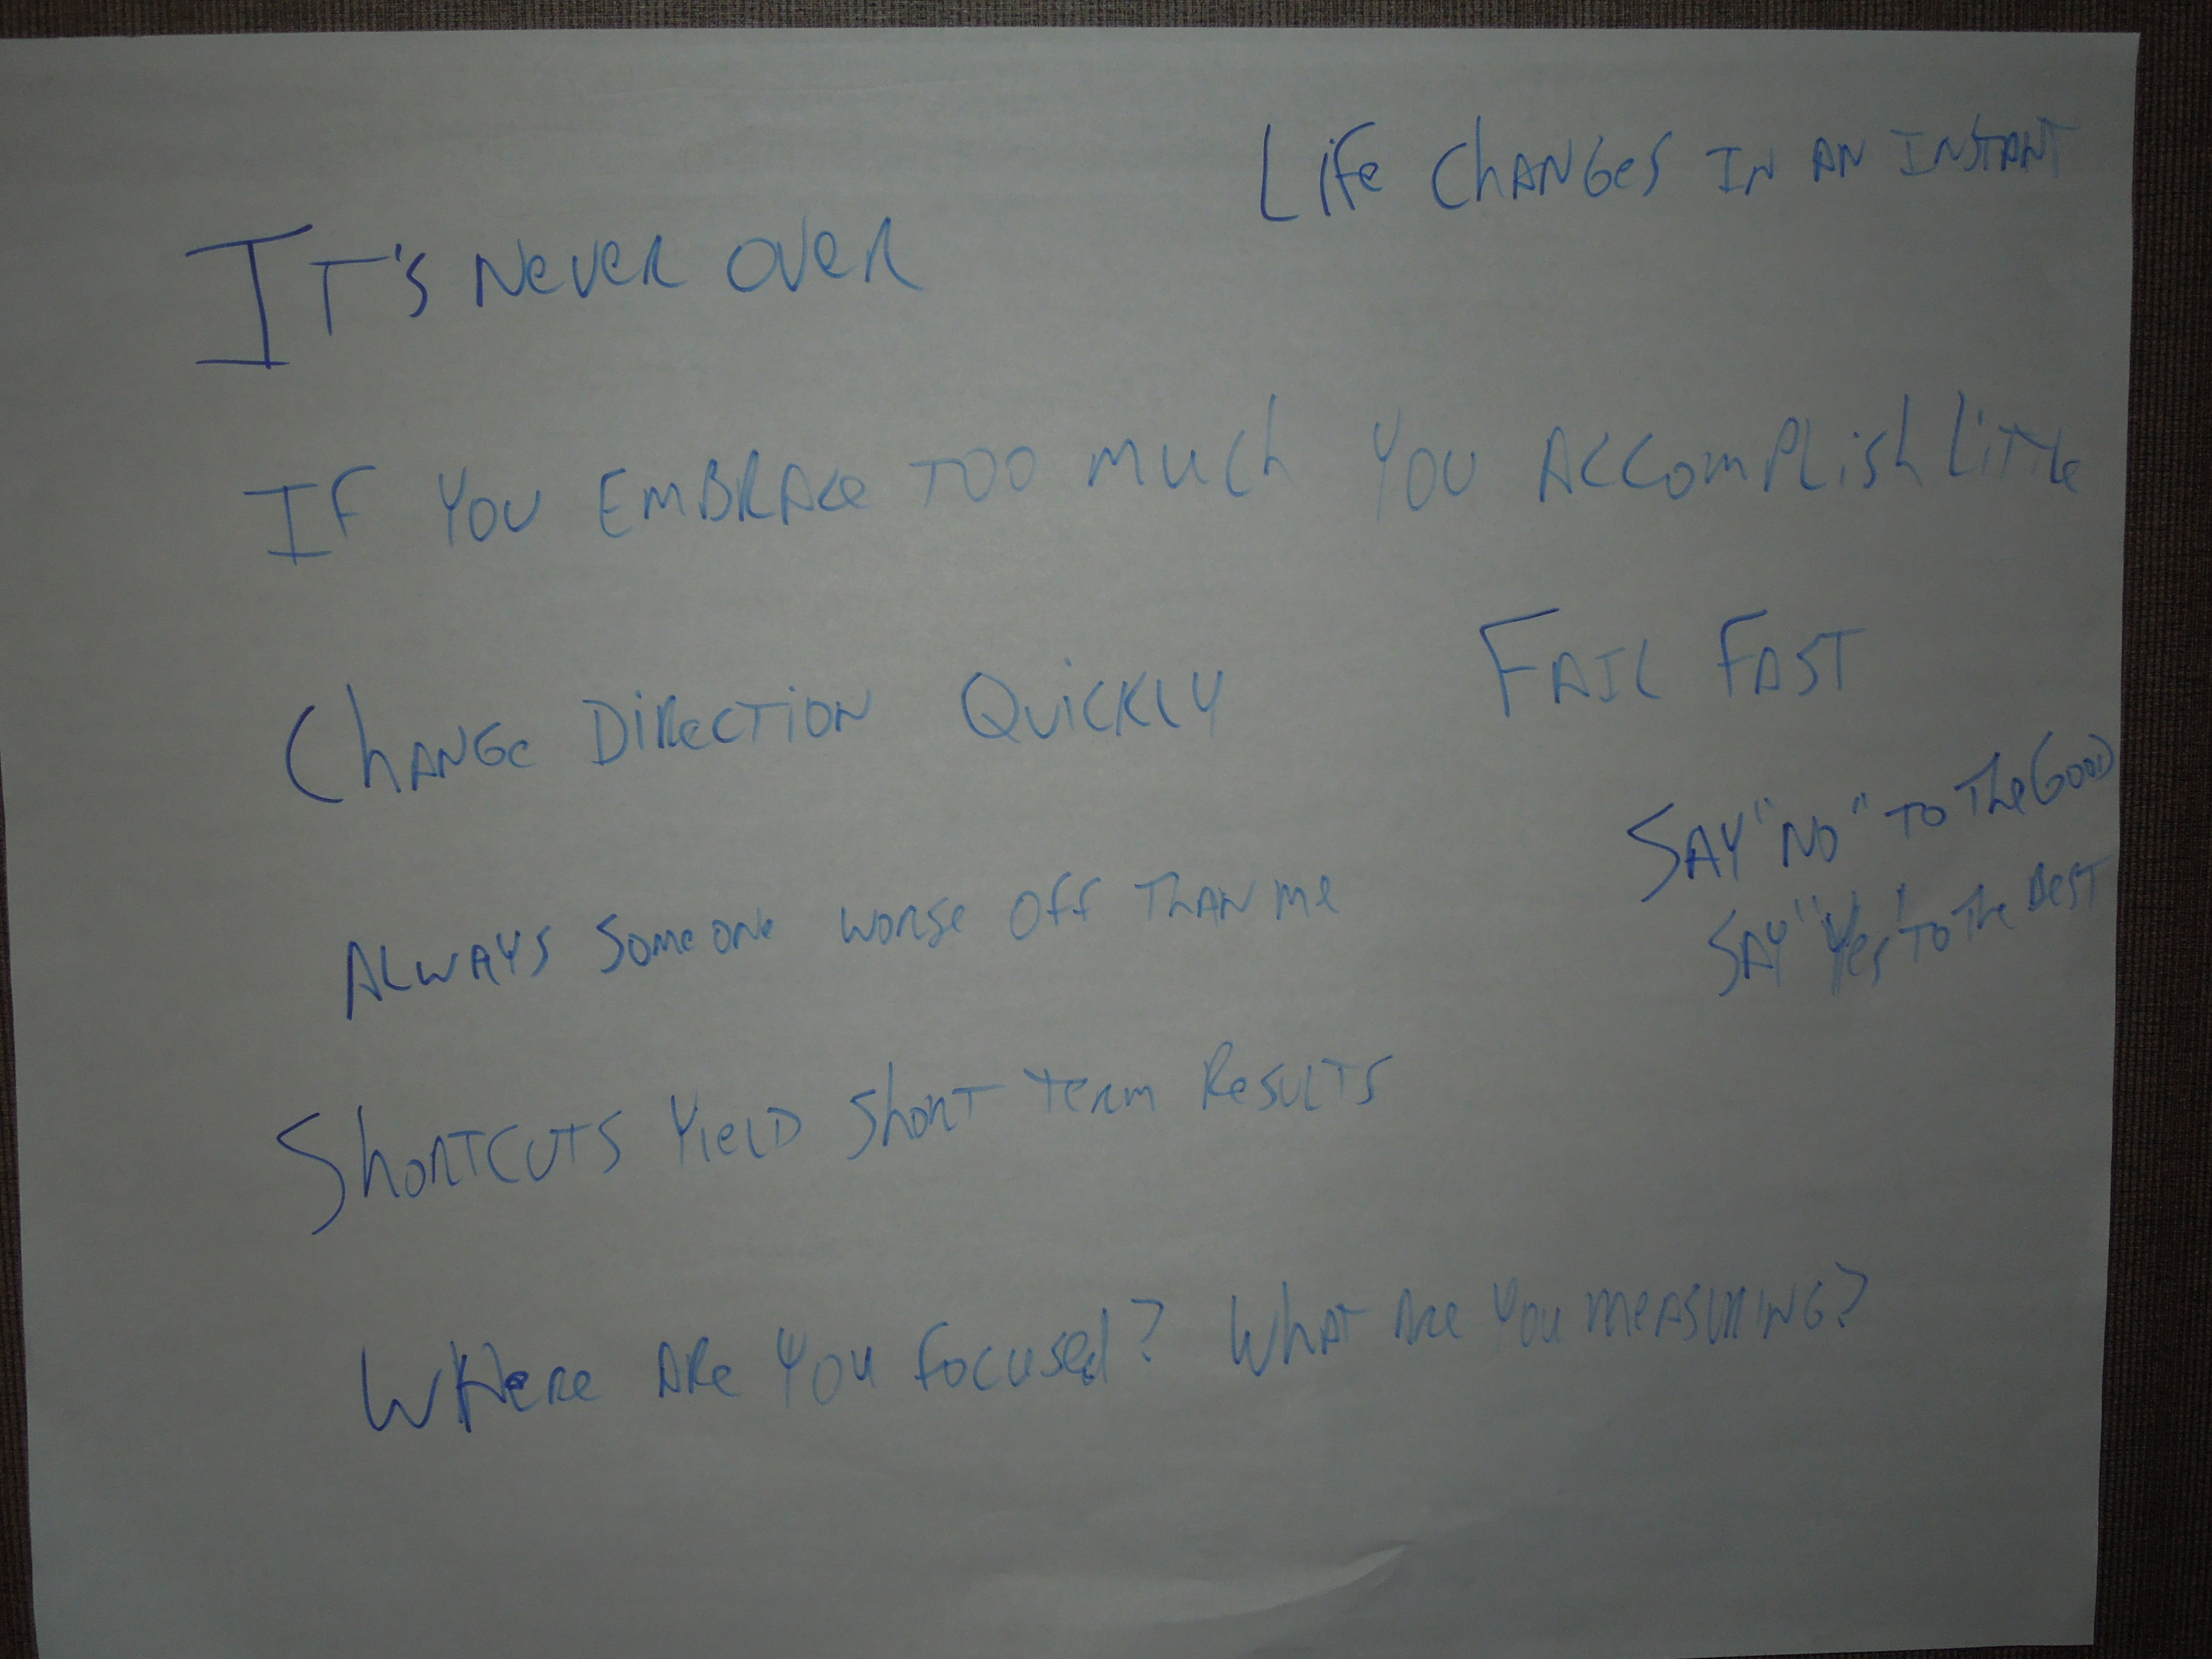 Life Changes In An Instant
It's Never Over
If You Embrace Too Much You Accomplish Little
Change Direction Quickly
Fail Fast
Say "No" To The Good
Say "Yes" To The Best
Always Someone Worse Off Than Me
Shortcuts Yield Short Term Results
Where Are You Focused? What Are You Measuring?